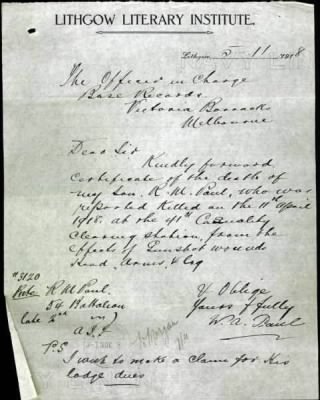 LITHGOW LITERARY INSTITUTE.
Lithgow, 5 11 1918
The Officer in Charge
Base Records
Victoria Barracks
Melbourne
Dear Sir
Kindly forward
Certificate of the death of
my Son. R. M. Paul, who was
reported Killed on the 11th April
1918. at the 41st Casualty
Clearing station, from the
Effects of Gunshot wounds
Head, Arms, & Leg
#3120
R M Paul. Y Oblige
54 Battalion Yours f fully
late 2nd W. A. Paul
A. I. F
P.S
I wish to make a claim for his
lodge dues